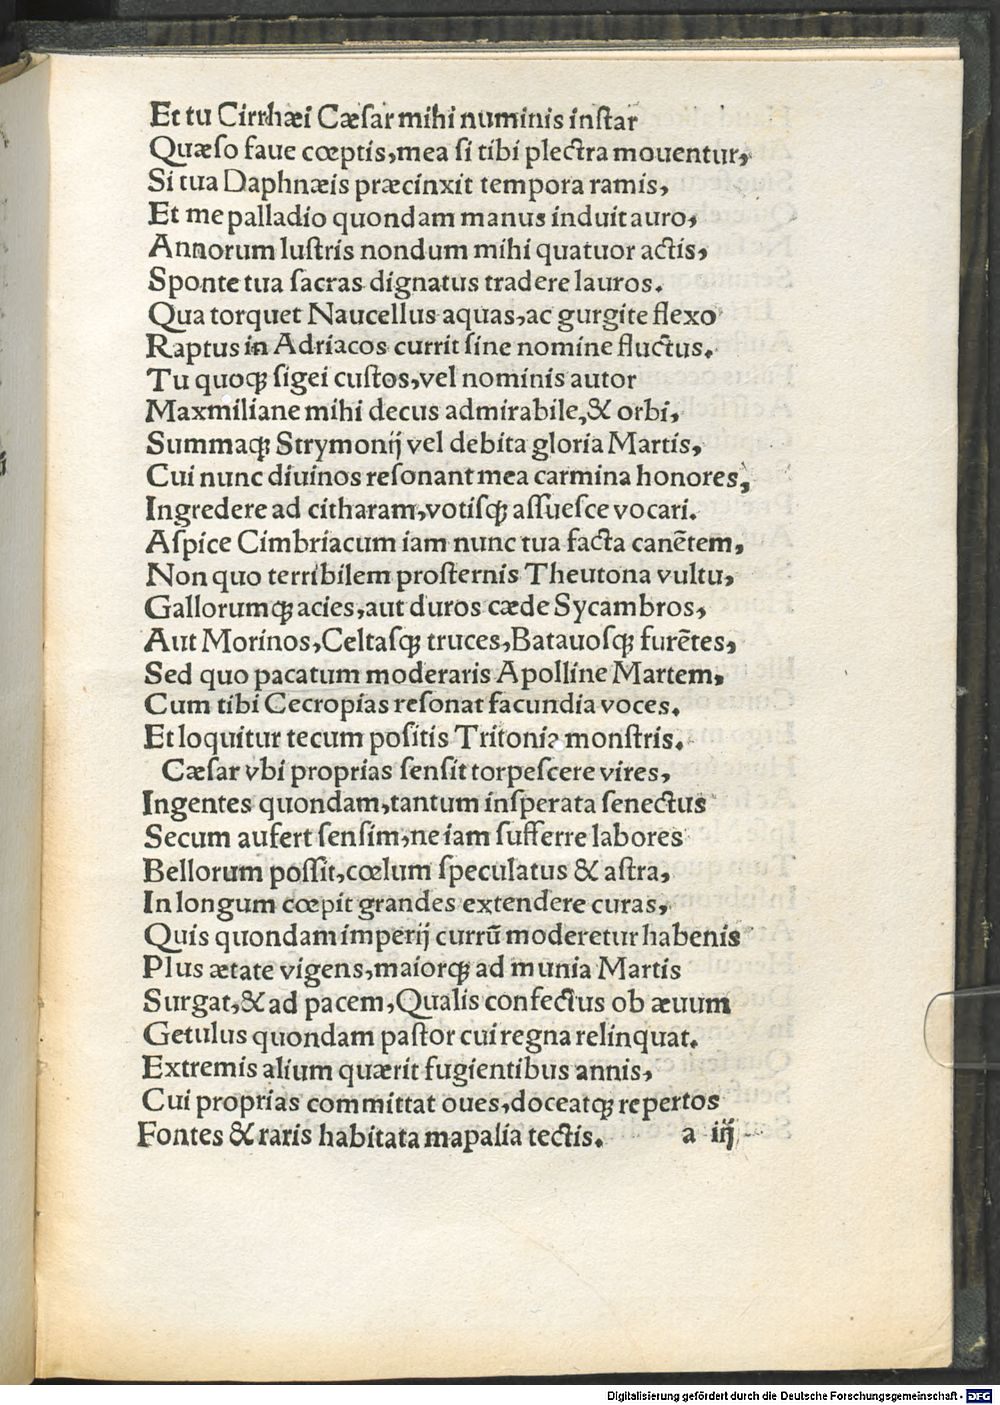 Et tu Cirrhæi Cæsar mihi numinis instar
Quæso faue cœptis, mea si tibi plectra mouentur,
Si tua Daphnæis præcinxit tempora ramis,
Et me palladio quondam manus induit auro,
Annorum lustris nondum mihi quatuor actis,
Sponte tua sacras dignatus tradere lauros.
Qua torquet Naucellus aquas, ac gurgite flexo
Raptus in Adriacos currit sine nomine fluctus.
Tu quoqꝫ sigei custos, vel nominis autor
Maxmiliane mihi decus admirabile, & orbi,
Summaqꝫ Strymonij vel debita gloria Martis,
Cui nunc diuinos resonant mea carmina honores,
Ingredere ad citharam, votisqꝫ assuesce vocari.
Aspice Cimbriacum iam nunc tua facta canẽtem,
Non quo terribilem prosternis Theutona vultu,
Gallorumqꝫ acies, aut duros cæde Sycambros,
Aut Morinos, Celtasqꝫ truces, Batauosqꝫ furẽtes,
Sed quo pacatum moderaris Apolline Martem,
Cum tibi Cecropias resonat facundia voces.
Et loquitur tecum positis Tritonia monstris.
Cæsar vbi proprias sensit torpescere vires,
Ingentes quondam, tantum insperata senectus
Secum aufert sensim, ne iam sufferre labores
Bellorum possit, cœlum speculatus & astra,
In longum cœpit grandes extendere curas,
Quis quondam imperij currũ moderetur habenis
Plus ætate vigens, maiorqꝫ ad munia Martis
Surgat, & ad pacem, Qualis confectus ob æuum
Getulus quondam pastor cui regna relinquat.
Extremis alium quærit fugientibus annis,
Cui proprias committat oues, doceatqꝫ repertos
Fontes & raris habitata mapalia tectis. a iij
Digitalisierung gefördert durch die Deutsche Forschungsgemeinschaft - DFG